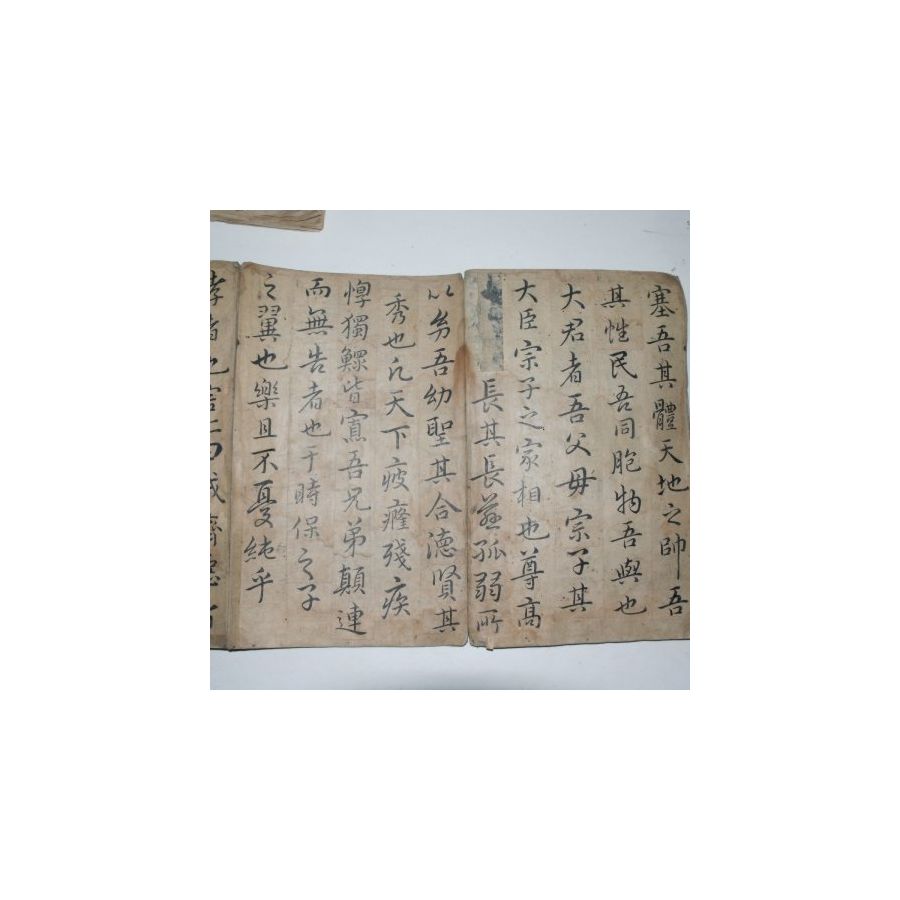 塞吾其體天地之帥吾
其性民吾同胞物吾與也
大君者吾父母宗子其
大臣宗子之家相也尊高
長其長慈孤弱所
以幼吾幼聖其合德賢其
秀也凡天下疲癃殘疾
惸獨鰥皆寡吾兄弟顛連
而無告者也于時保之子
之翼也樂且不憂純乎
孝者也害仁曰賊濟惡者